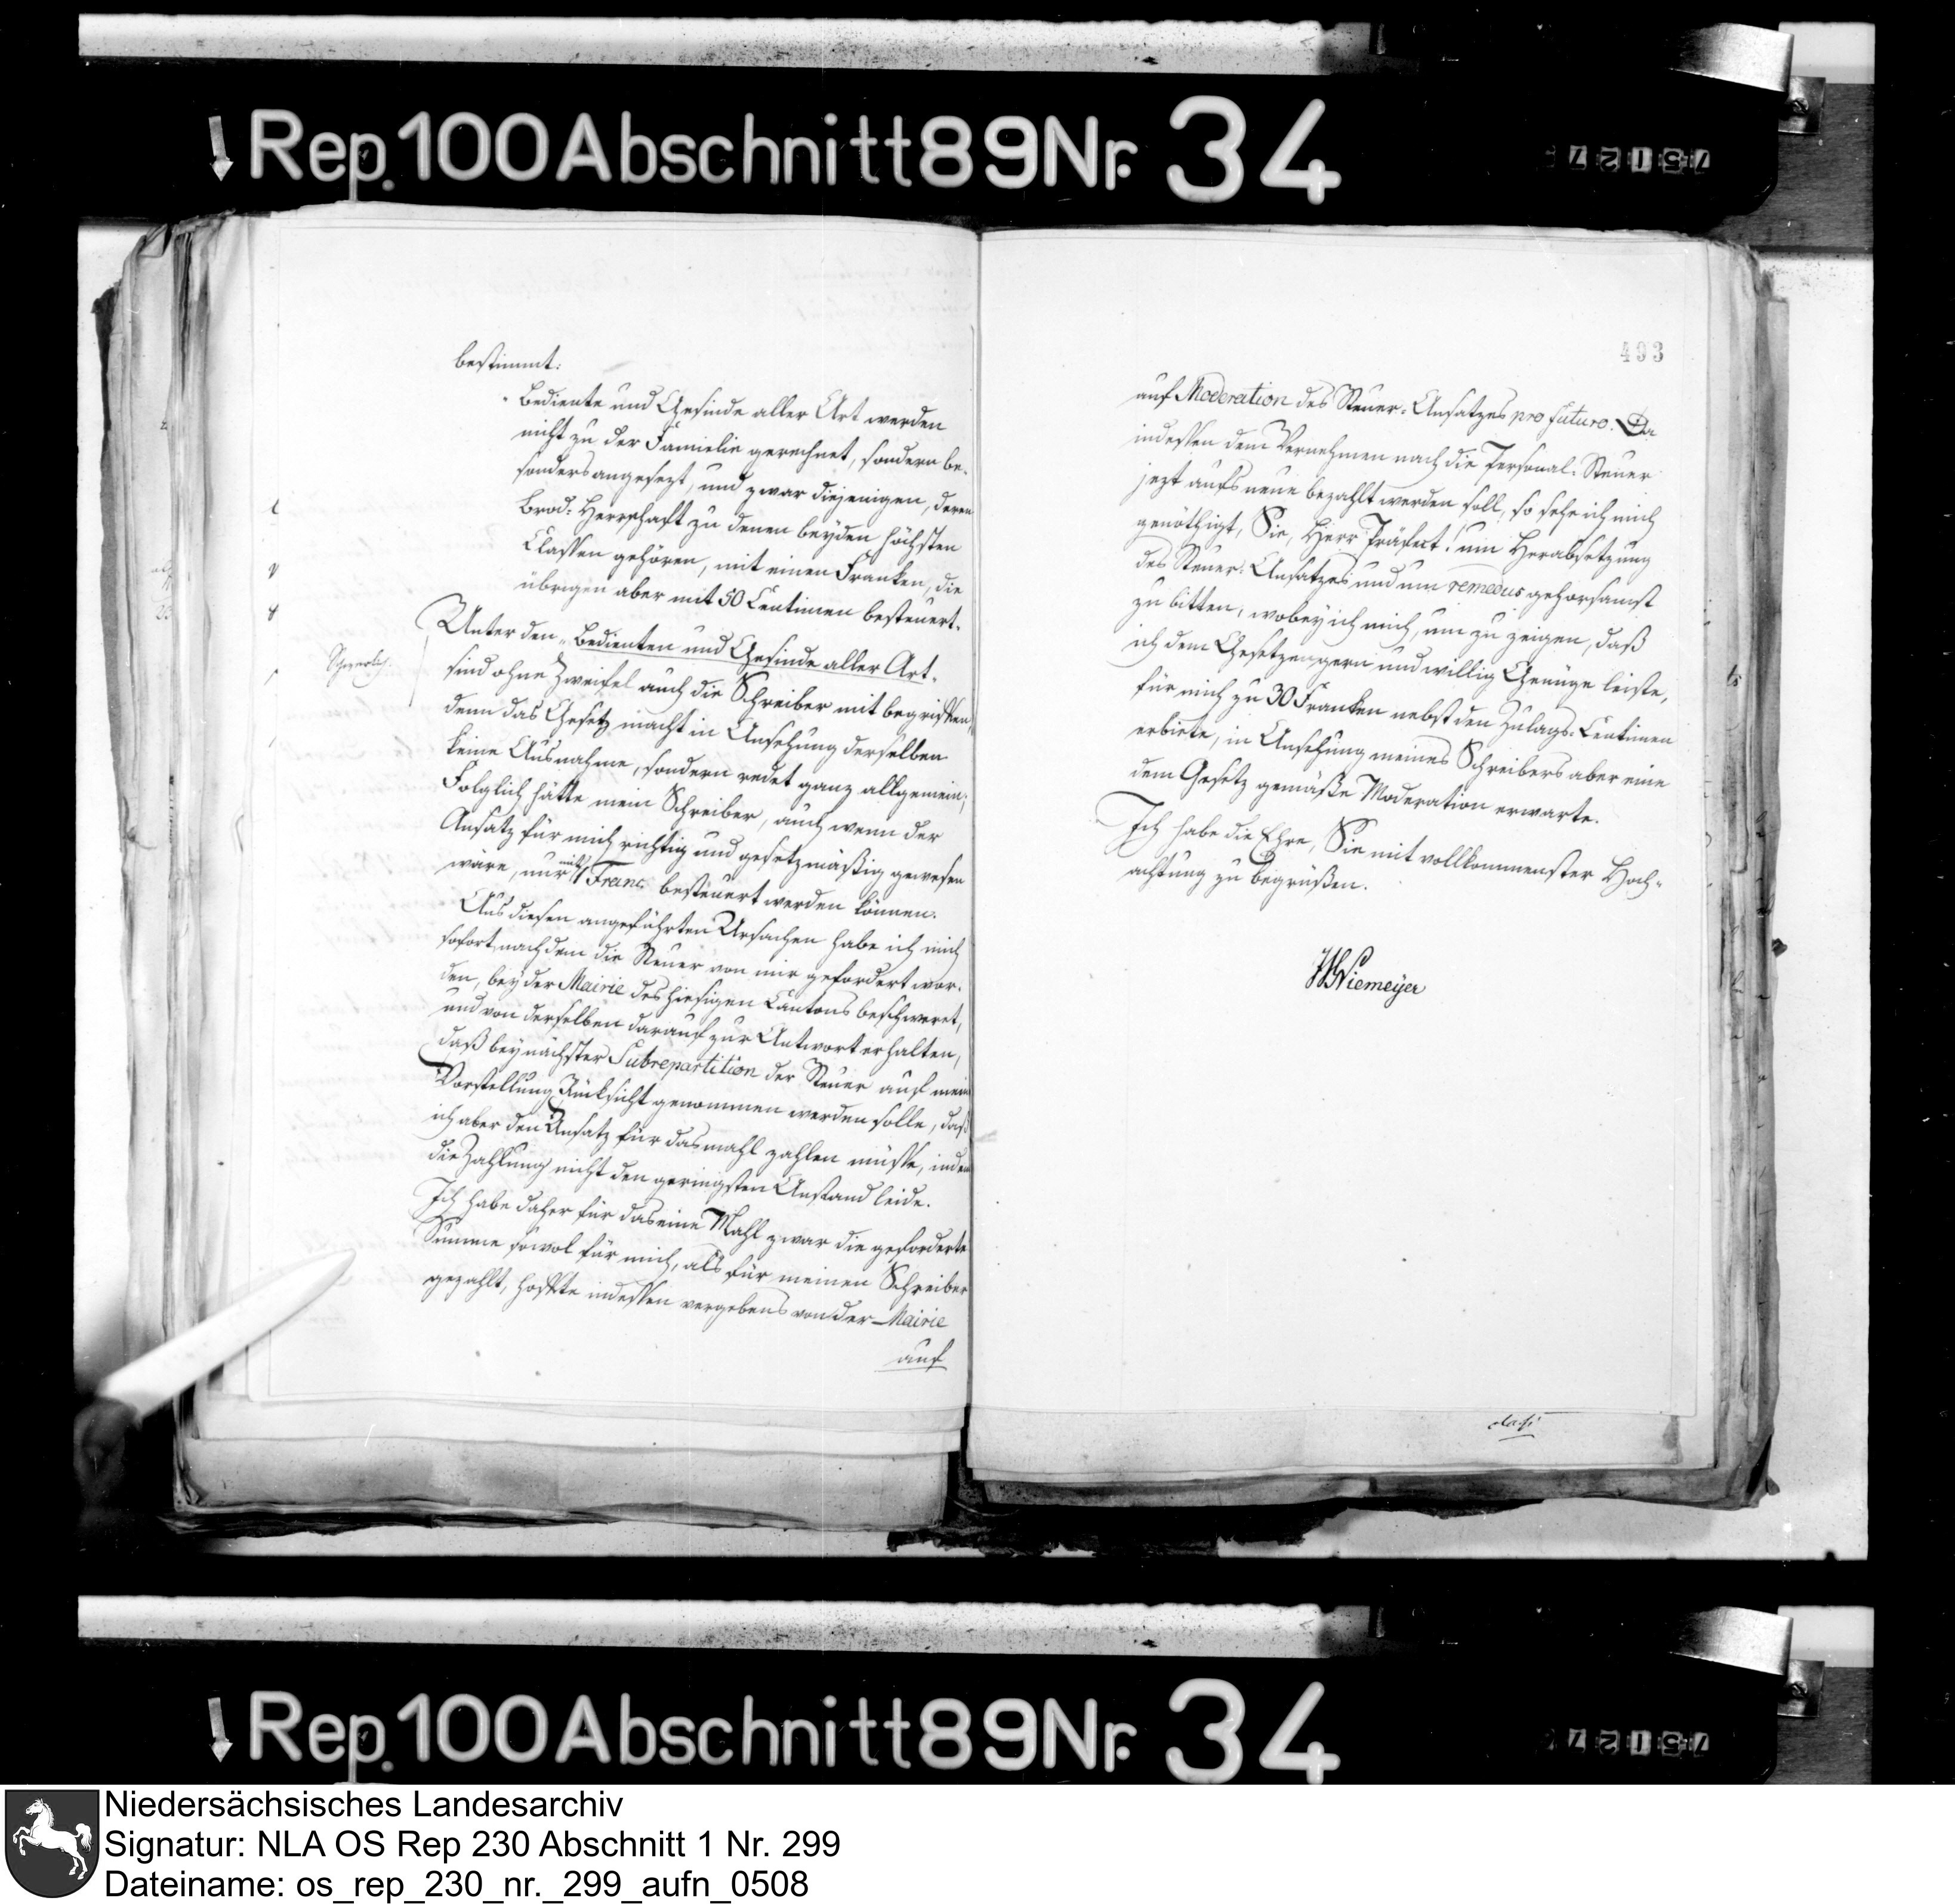 Rep. 100 Abschnitt 89 Nr. 34
bestimmt:
„Bediente und Gesinde aller Art werden
nicht zu der Familie gerechnet, sondern be-
sonders angesezt, und zwar diejenigen, deren
Brod-Herrschaft zu denen beyden höchsten
Classen gehören, mit einen Franken, die
übrigen aber mit 50 Centimen besteuert.
Unter den „Bedienten und Gesinde aller Art“
sind ohne Zweifel auch die Schreiber mit begriffen,
denn das Gesetz macht in Ansehung derselben
keine Ausnahme, sondern redet ganz allgemein;
Folglich hätte mein Schreiber, auch wenn der
Ansatz für mich richtig und gesetzmäßig gewesen
wäre, nur mit 1 Franc. besteuert werden können.
Aus diesen angeführten Ursachen habe ich mich
sofort nachdem die Steuer von mir gefordert wor-
den, bey der Mairie des hiesigen Cantons beschweret,
und von derselben darauf zur Antwort erhalten,
daß bey nächster Subrepartition der Steuer auf mein
Vorstellung Rücksicht genommen werden solle, daß
ich aber den Ansatz für dasmahl zahlen müsse, indem
die Zahlung nicht den geringsten Anstand leide.
Ich habe daher für das eine Mahl zwar die geforderte
Summe sowol für mich, als für meinen Schreiber
gezahlt, hoffte indessen vergebens von der Mairie
auf
493
auf Moderation des Steuer-Ansatzes pro futuro. Da
indessen dem Vernehmen nach die Personal-Steuer
jezt aufs neue bezahlt werden soll, so sehe ich mich
genöthigt, Sie, Herr Präfect! um Herabsetzung
des Steuer-Ansatzes und um remedur gehorsamst
zu bitten, wobey ich mich, um zu zeigen, daß
ich dem Gesetze gern und willig Genüge leiste,
für mich zu 30 Franken nebst den Zulags-Centimen
erbiete, in Ansehung meines Schreibers aber eine
dem Gesetz gemäße Moderation erwarte.
Ich habe die Ehre, Sie mit vollkommenster Hoch-
achtung zu begrüßen.
Niemeyer
Rep. 100 Abschnitt 89 Nr. 34
Niedersächsisches Landesarchiv
Signatur: NLA OS Rep 230 Abschnitt 1 Nr. 299
Dateiname: os_rep_230_nr._299_aufn_0508